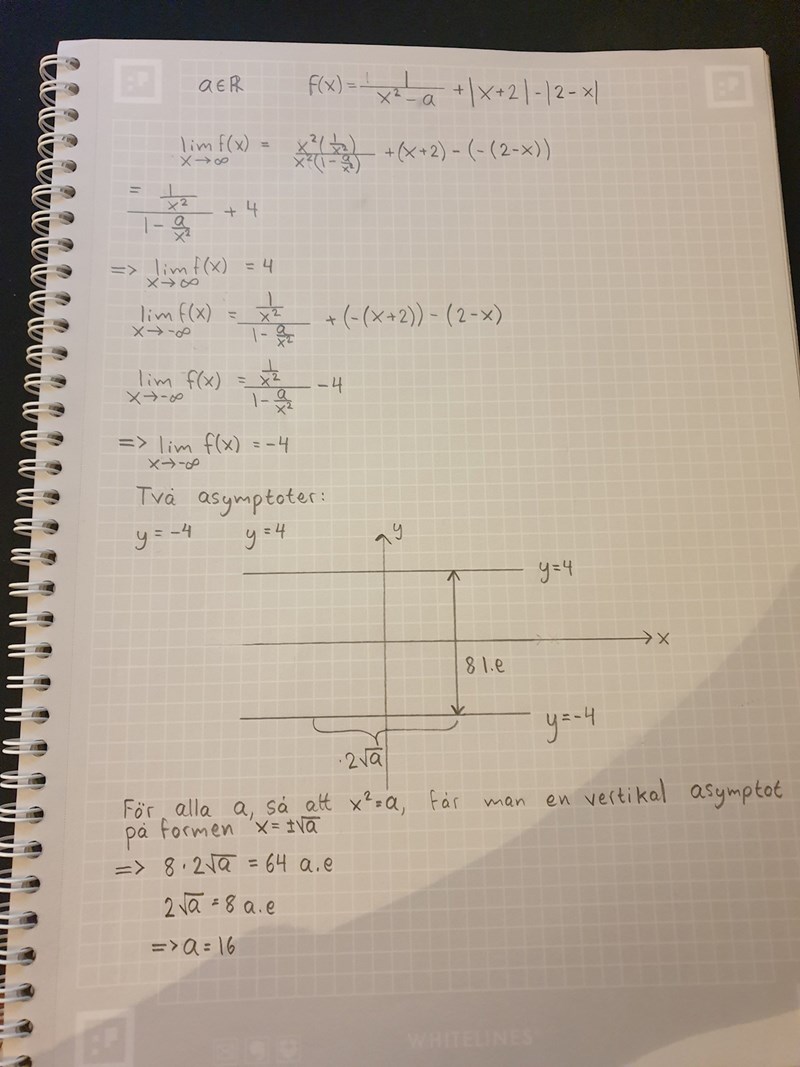 a∈ℝ f(x) = 1/(x² - a) + |x+2| - |2-x|
lim x→∞ f(x) = x²(1/x²)/(x²(1 - a/x²)) + (x+2) - (-(2-x))
= (1/x²)/(1 - a/x²) + 4
=> lim x→∞ f(x) = 4
lim x→-∞ f(x) = (1/x²)/(1 - a/x²) + (-(x+2)) - (2-x)
lim x→-∞ f(x) = (1/x²)/(1 - a/x²) - 4
=> lim x→-∞ f(x) = -4
Två asymptoter:
y = -4 y = 4
y
y=4
x
8 l.e
y=-4
·2√a
För alla a, så att x²=a, får man en vertikal asymptot
på formen x = ±√a
=> 8·2√a = 64 a.e
2√a = 8 a.e
=> a = 16
WHITELINES®